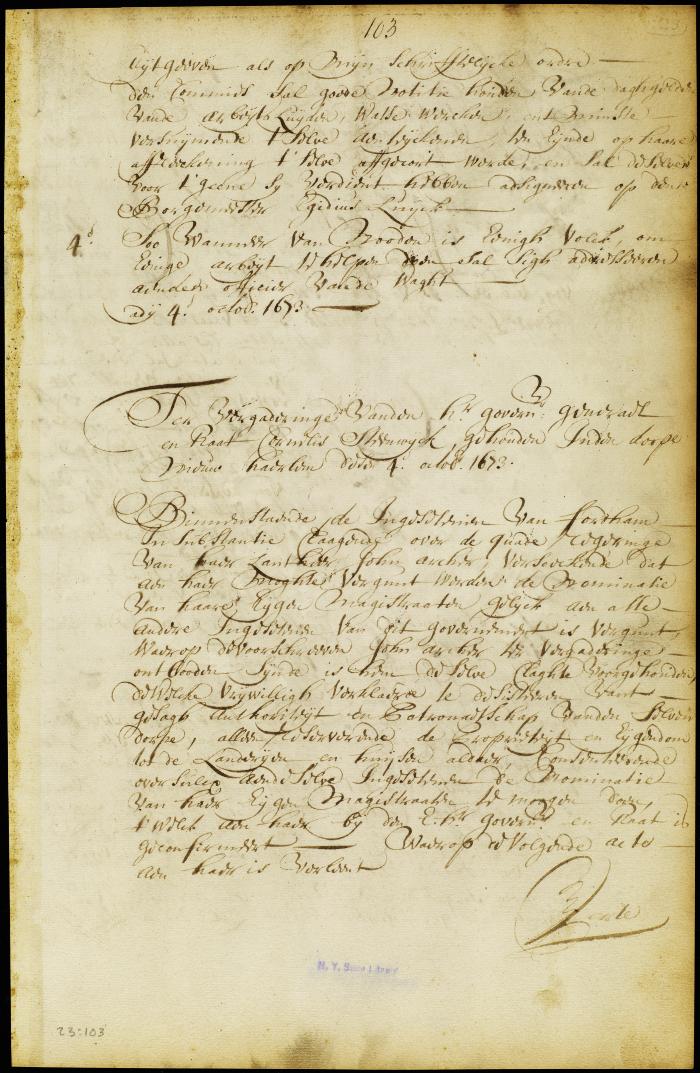 103
uytgeeven als op mijn Schrifftelycke ordre —
den Commis sal goede Notitie houden Vande daghgelden
Vande arbeyts Luyden, Watse Wercken, ent minste
Versuymende t'selve aenteyckenen, ten Eynde op haare
affreeckening t'selve affgecort werde, en sal deselven
voor t'geene sy Verdient hebben adsigneren op den
Borgemeester Egidius Luyck —
4.º Soo Wanneer Van Nooden is Eenigh Volck, om
Eenige arbeyt te helpen doen sal sigh addresseeren
aenden officier Vande Waght —
ady 4.º octob. 1673 —
Ter Vergaderinge Vanden hr. govern.r generael
en Raat Cornelis Steenwyck, gehouden Inden dorpe
Nieuw haerlem desen 4.º octob. 1673.
Binnenstaende de Ingesetenen Van fordham
In substantie Claagende over de quade regeringe
Van haer Lantheer John archer, Versoeckende dat
aen haer moghte Vergunt werden de Nominatie
Van haare Eygen Magistraaten gelyck aen alle —
andere Ingesetenen Van dit governement is Vergunt,
Waerop de voorschreeven John archer ter Vergaderinge —
ontbooden synde is hem deselve Claghte Voorgehouden
deWelcke Vrywilligh Verklaere te desisteren Van't —
gesagh Authoriteyt en Patroonschap Vanden Selven
dorpe, alleen reserverende de Proprieteyt en Eygendom
tot de Landeryen en huysen aldaer, Consenteerende
oversulcx aende selve Ingesetenen de Nominatie
Van haer Eygen Magistraaten te mogen doen,
t'Welck aen haer by den E. hr. govern.r en Raat is
geconfirmeert — Waerop de Volgende acte
aen haer is Verleent
Verte
N. Y. State Library
23:103